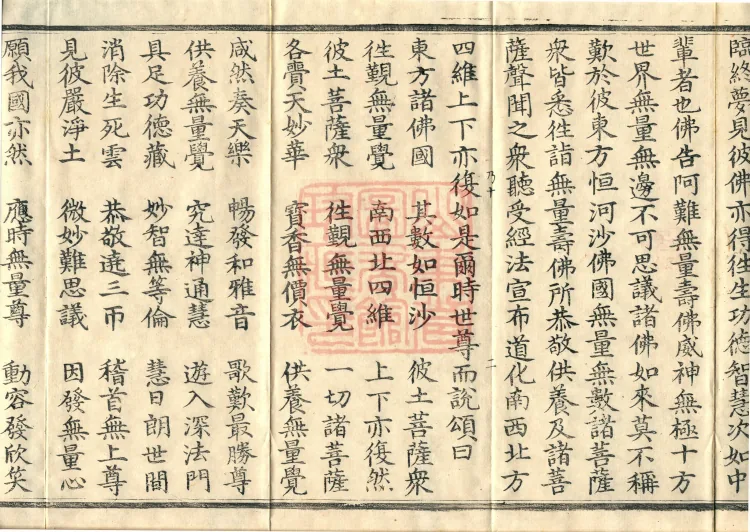 臨終夢見彼佛亦得往生功德智慧次如中
輩者也佛告阿難無量壽佛威神無極十方
世界無量無邊不可思議諸佛如來莫不稱
歎於彼東方恒河沙佛國無量無數諸菩薩
衆皆悉往詣無量壽佛所恭敬供養及諸菩
薩聲聞之衆聽受經法宣布道化南西北方
四維上下亦復如是爾時世尊而說頌曰
乃十
二
東方諸佛國 其數如恒沙 彼土菩薩衆
往覲無量覺 南西北四維 上下亦復然
彼土菩薩衆 往覲無量覺 一切諸菩薩
各賫天妙華 寶香無價衣 供養無量覺
咸然奏天樂 暢發和雅音 歌歎最勝尊
供養無量覺 究達神通慧 遊入深法門
具足功德藏 妙智無等倫 慧日朗世間
消除生死雲 恭敬遶三帀 稽首無上尊
見彼嚴淨土 微妙難思議 因發無量心
願我國亦然 應時無量尊 動容發欣笑